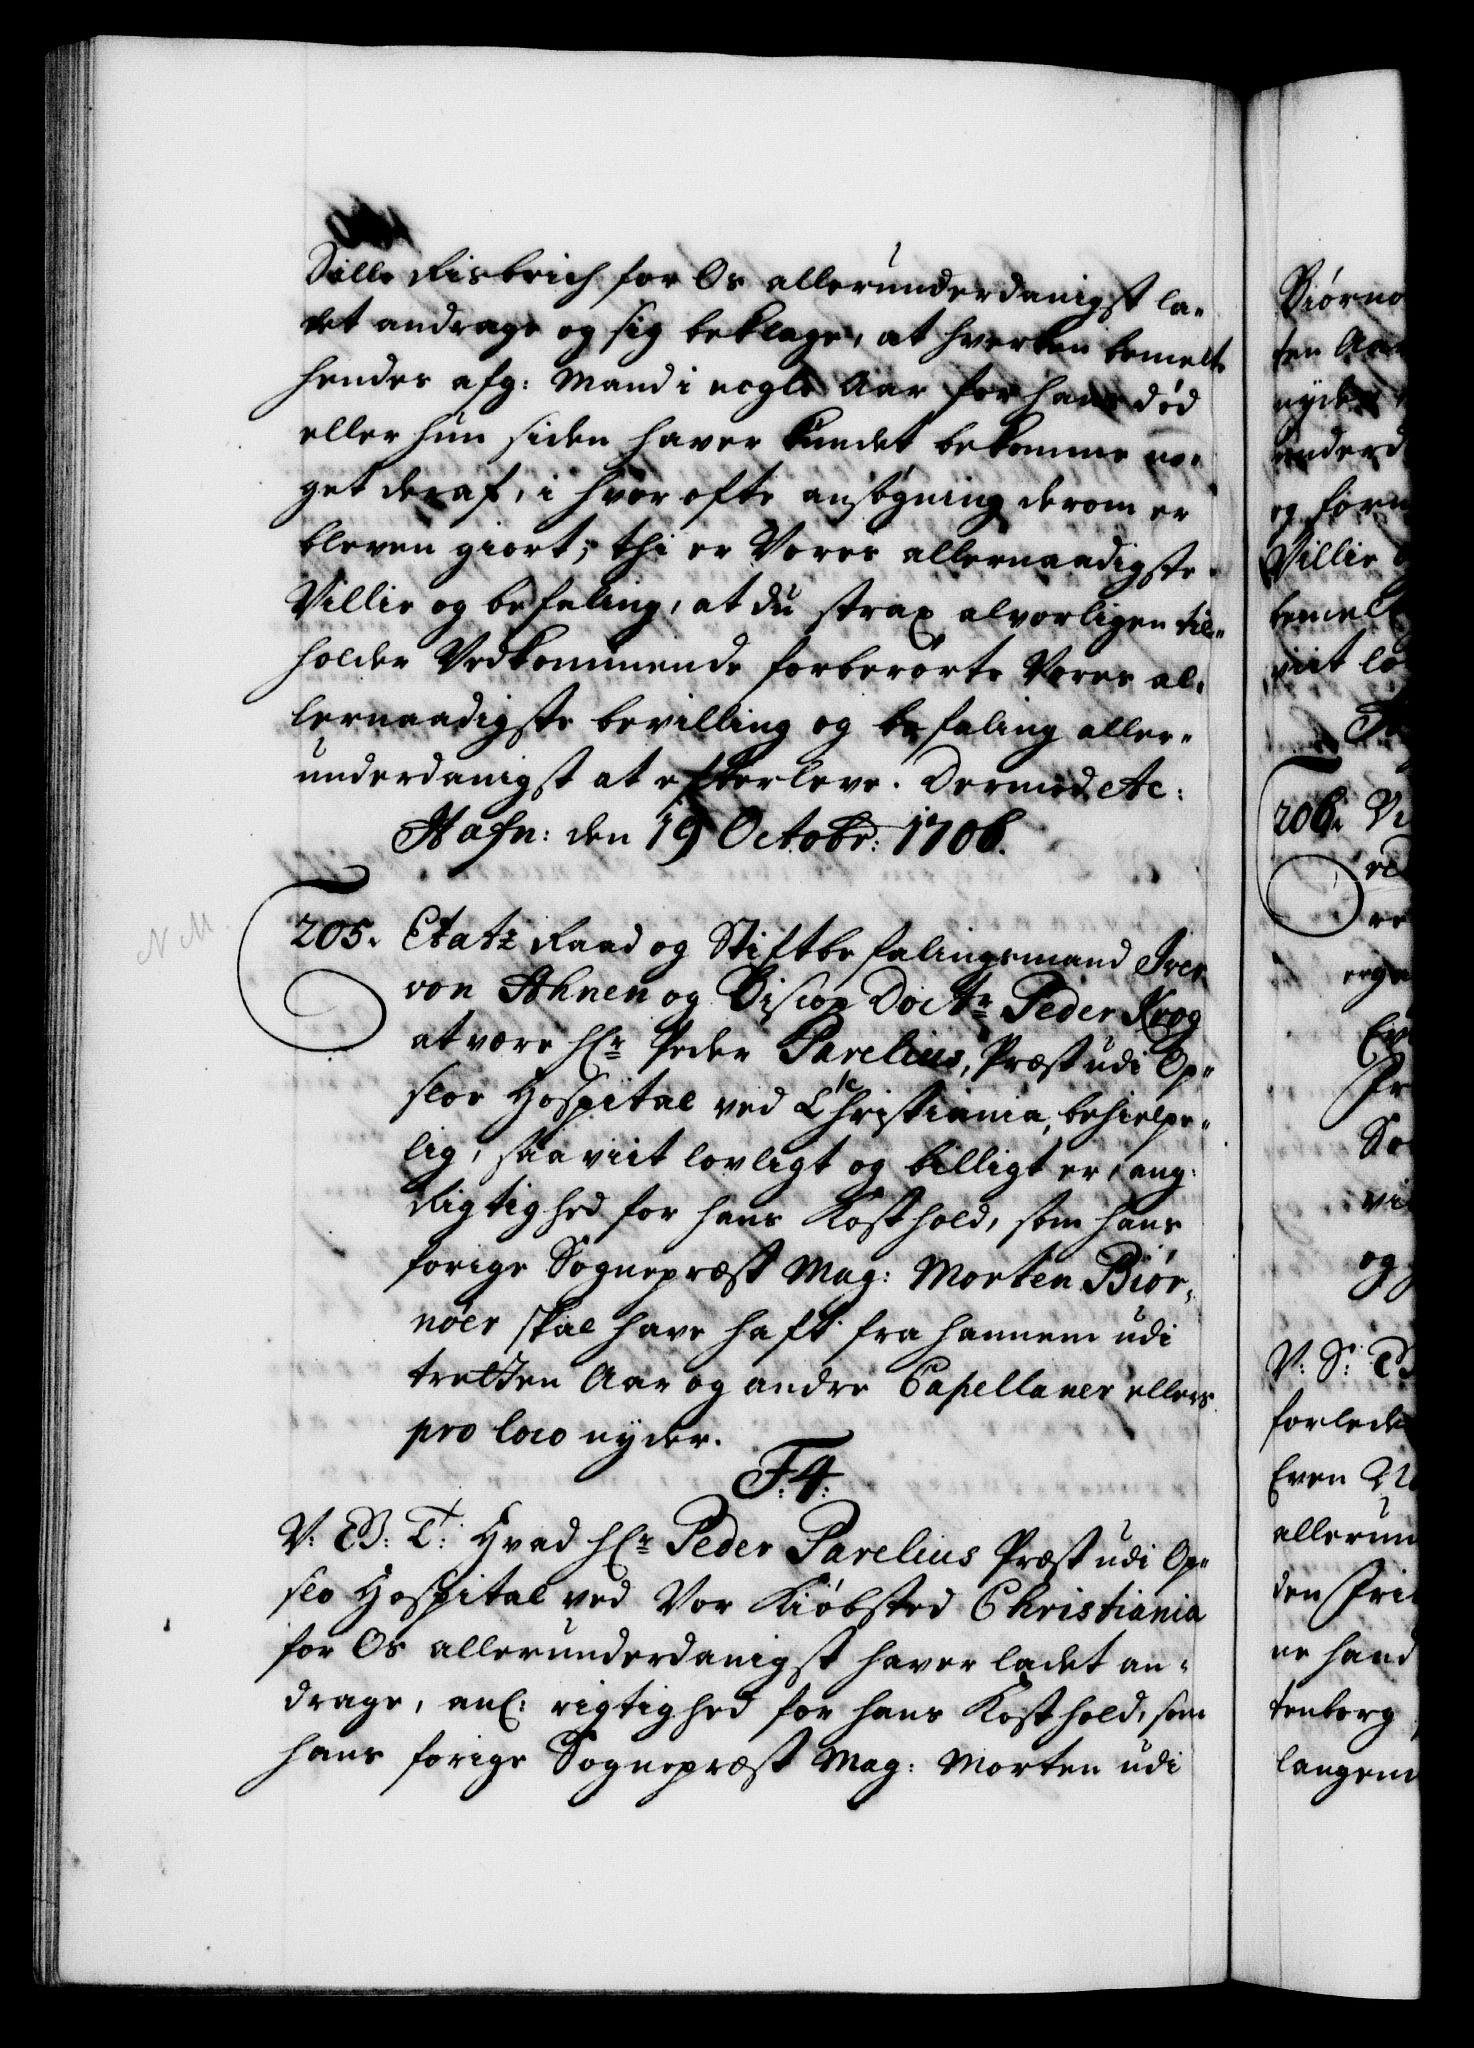 Sille Fisbrich for Os allerunderdanigst la-
det andrage og sig beklage, at hverken bemelte
hendes afg: Mand i nogle Aar for hans død
eller hun siden haver kundet bekomme no-
get deraf, i hvor ofte ansøgning derom er
bleven giort; thi er Vores allernaadigste
Villie og befaling, at du strax alvorligen til-
holder Vedkommende forberørte Vores al-
lernaadigste bevilling og befaling aller-
underdanigst at efterleve. Dermed etc:
Hafn: den 19 Octobr: 1706.
N M.
205. Etatz Raad og Stiftbefalingsmand Iver
von Ahnen og Biscop Doctr Peder Krog
at være Hr Peder Parelius, Præst udi Op-
sloe Hospital ved Christiania, behielpe-
lig, saa viit lovligt og billigt er, ang:
Rigtighed for hans Kosthold, som hans
forige Sognepræst Mag: Morten Biør-
nøer skal have haft fra hannem udi
tretten Aar og andre Capellaner ellers
pro loco nyder.
F: 4:
V: B: T: Hvad Hr Peder Parelius Præst udi Op-
slo Hospital ved Vor Kiøbsted Christiania
for Os allerunderdanigst haver ladet an-
drage, anl: rigtighed for hans Kosthold, som
hans forige Sognepræst Mag: Morten udi
Biørnø
ten Aar
nyde
underd
og forn
Villie
bemel
viit lo
206. Vi
red
Ev
Pr
So
vi
og
V: S: B
forlede
Even
allerun
den Fri
ne hand
tenborg
langem